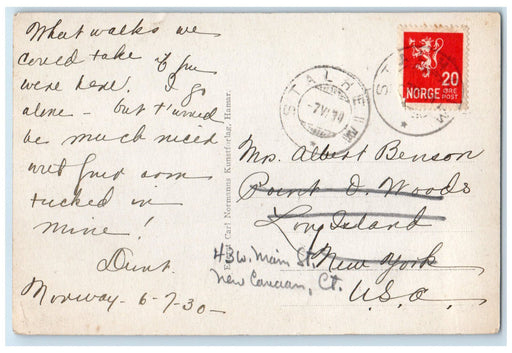 What walks we
could take if you
were here. I go
alone - but t'would
be much nicer
with your arm
tucked in
mine!
Norway - 6-7-30-
Eneret Carl Normanns Kunstforlag, Hamar.
STALHEIM
7 VI 30
20
NORGE ØRE
POST
Mrs. Albert Benson
Point O. Woods
Long Island
New York
U.S.A.
43 W. Main St.
New Canaan, Ct.